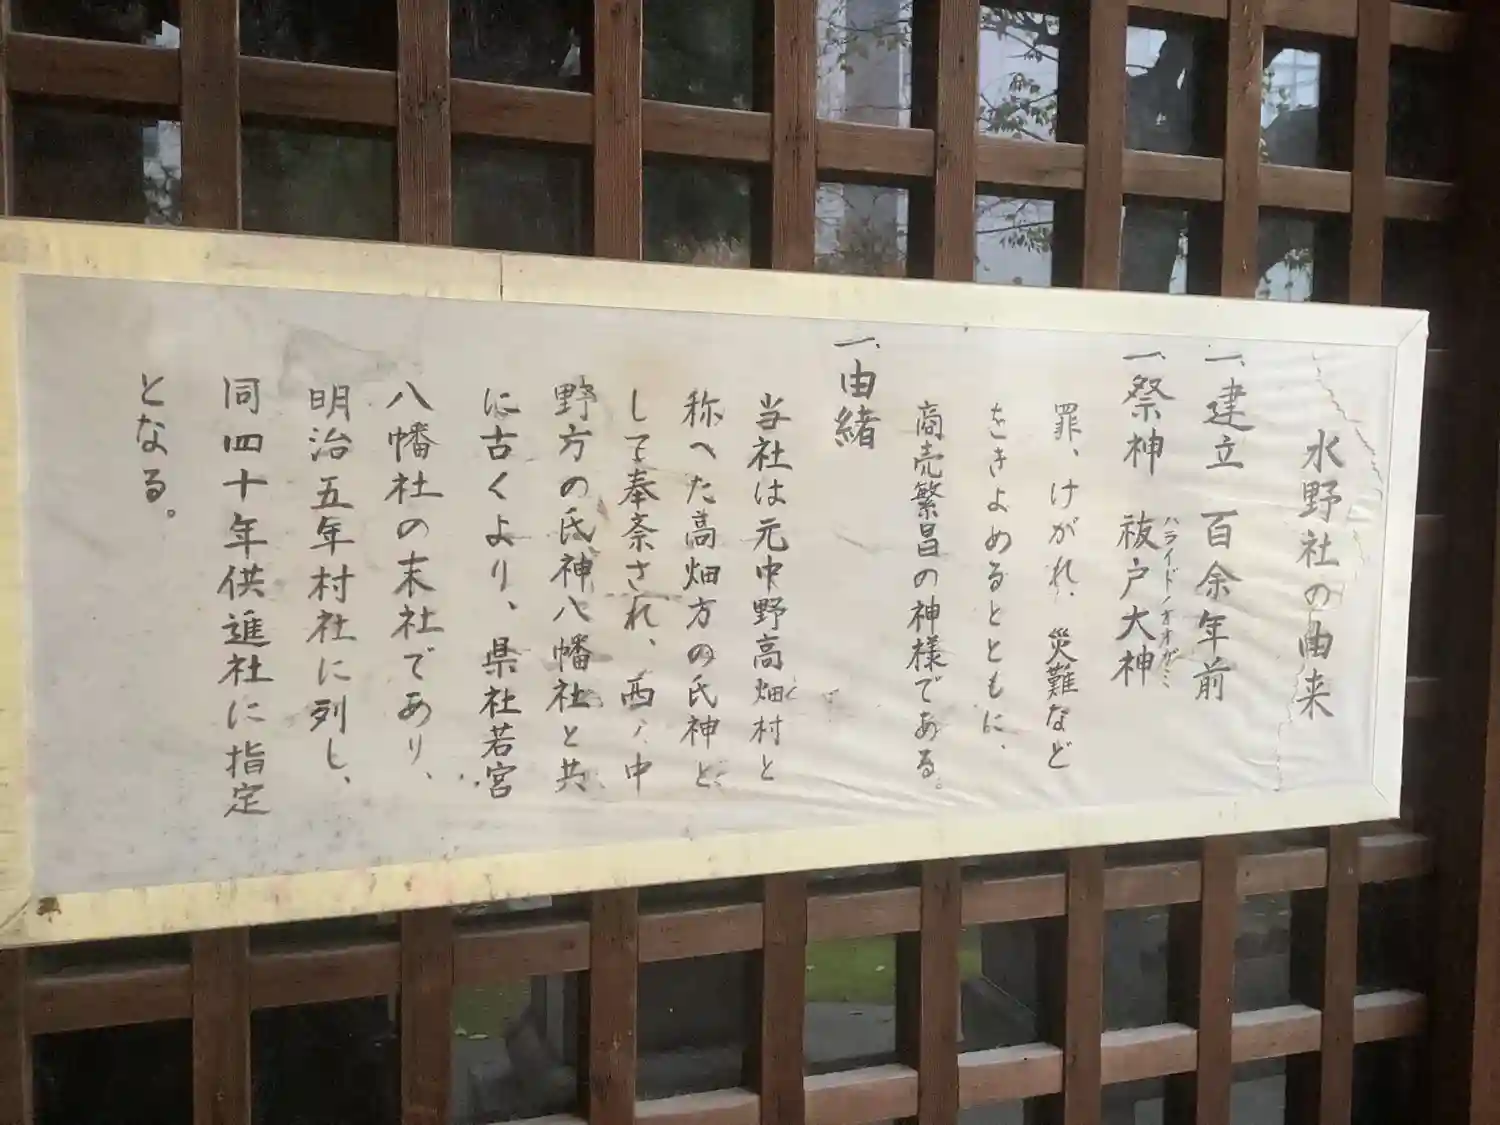 水野社の由来
一、建立 百余年前
一、祭神 祓戸大神
ハライドノオオガミ
罪、けがれ、災難など
をきよめるとともに、
商売繁昌の神様である。
一、由緒
当社は元中野高畑村と
称へた高畑方の氏神と
して奉斎され、西ノ中
野方の氏神八幡社と共
に古くより、県社若宮
八幡社の末社であり、
明治五年村社に列し、
同四十年供進社に指定
となる。